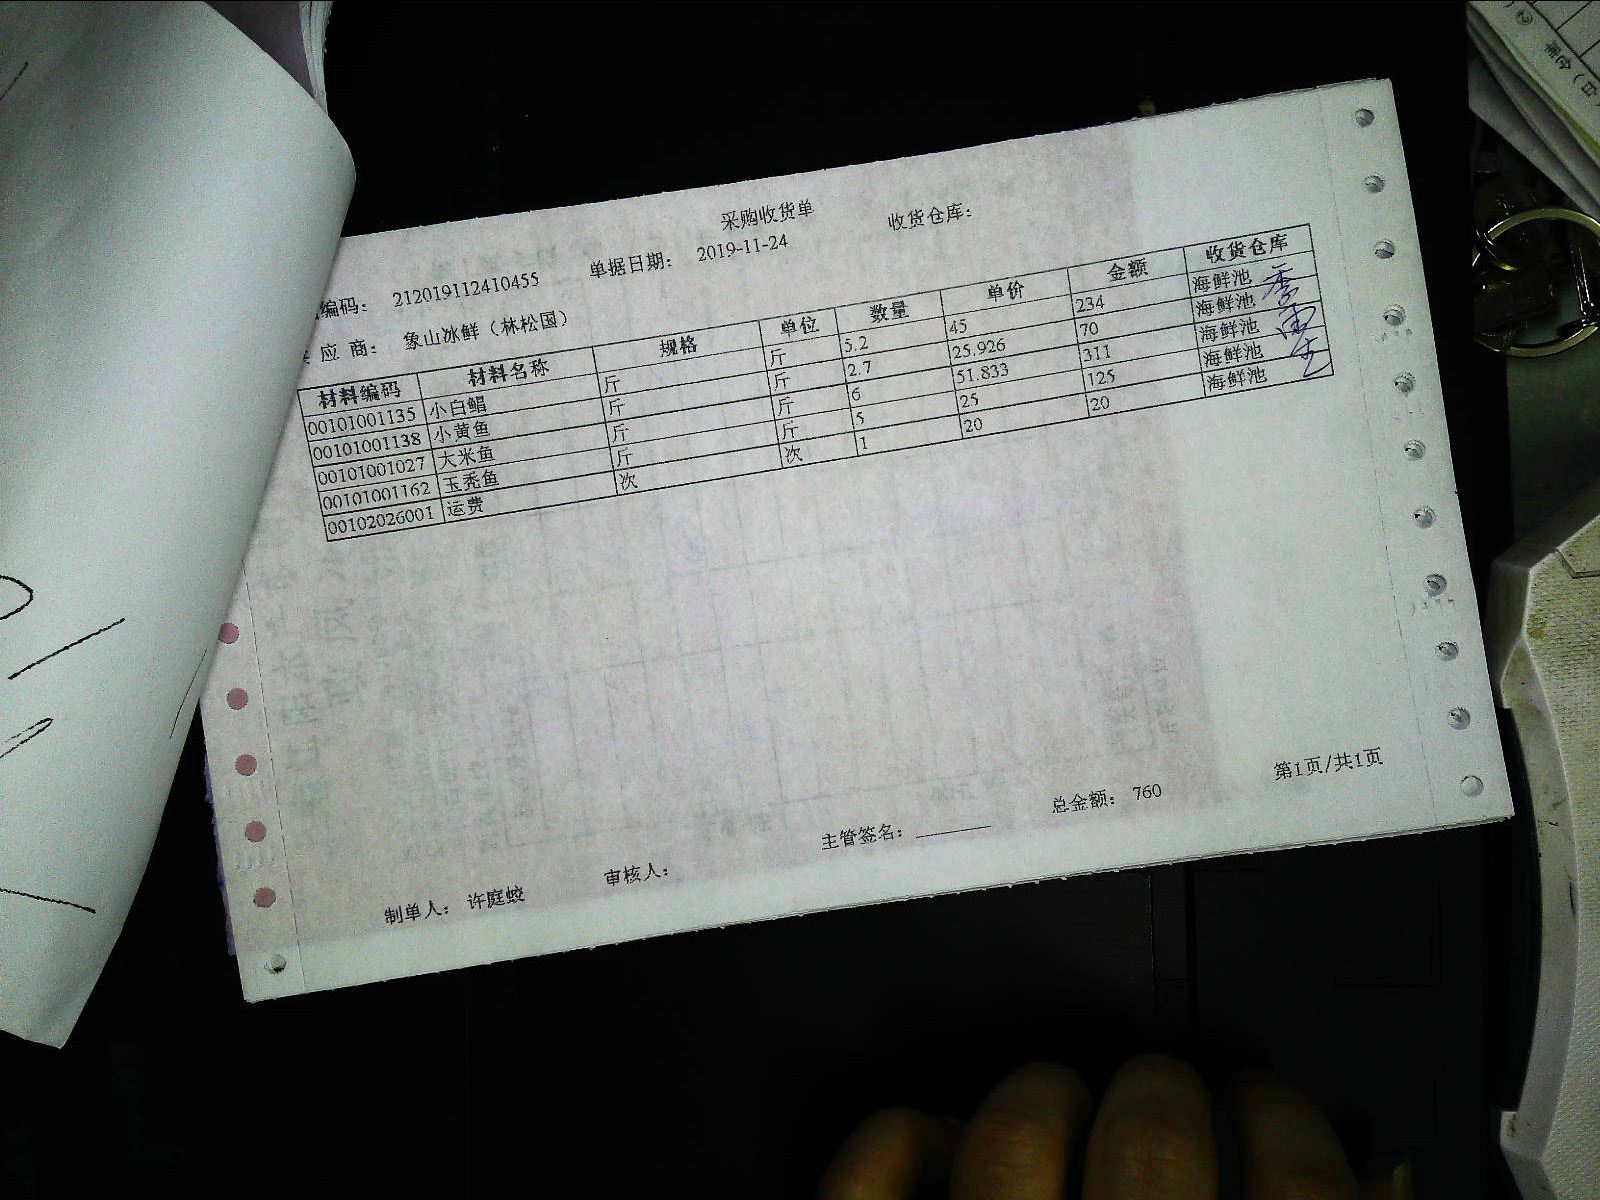 采购收货单
编码： 212019112410455 单据日期： 2019-11-24 收货仓库：
应 商： 象山冰鲜（林松国）
材料编码 材料名称 规格 单位 数量 单价 金额 收货仓库
00101001135 小白鲳 斤 斤 5.2 45 234 海鲜池
00101001138 小黄鱼 斤 斤 2.7 25.926 70 海鲜池
00101001027 大米鱼 斤 斤 6 51.833 311 海鲜池
00101001162 玉秃鱼 斤 斤 5 25 125 海鲜池
00102026001 运费 次 次 1 20 20 海鲜池
制单人： 许庭蛟 审核人： 主管签名： 总金额： 760 第1页/共1页